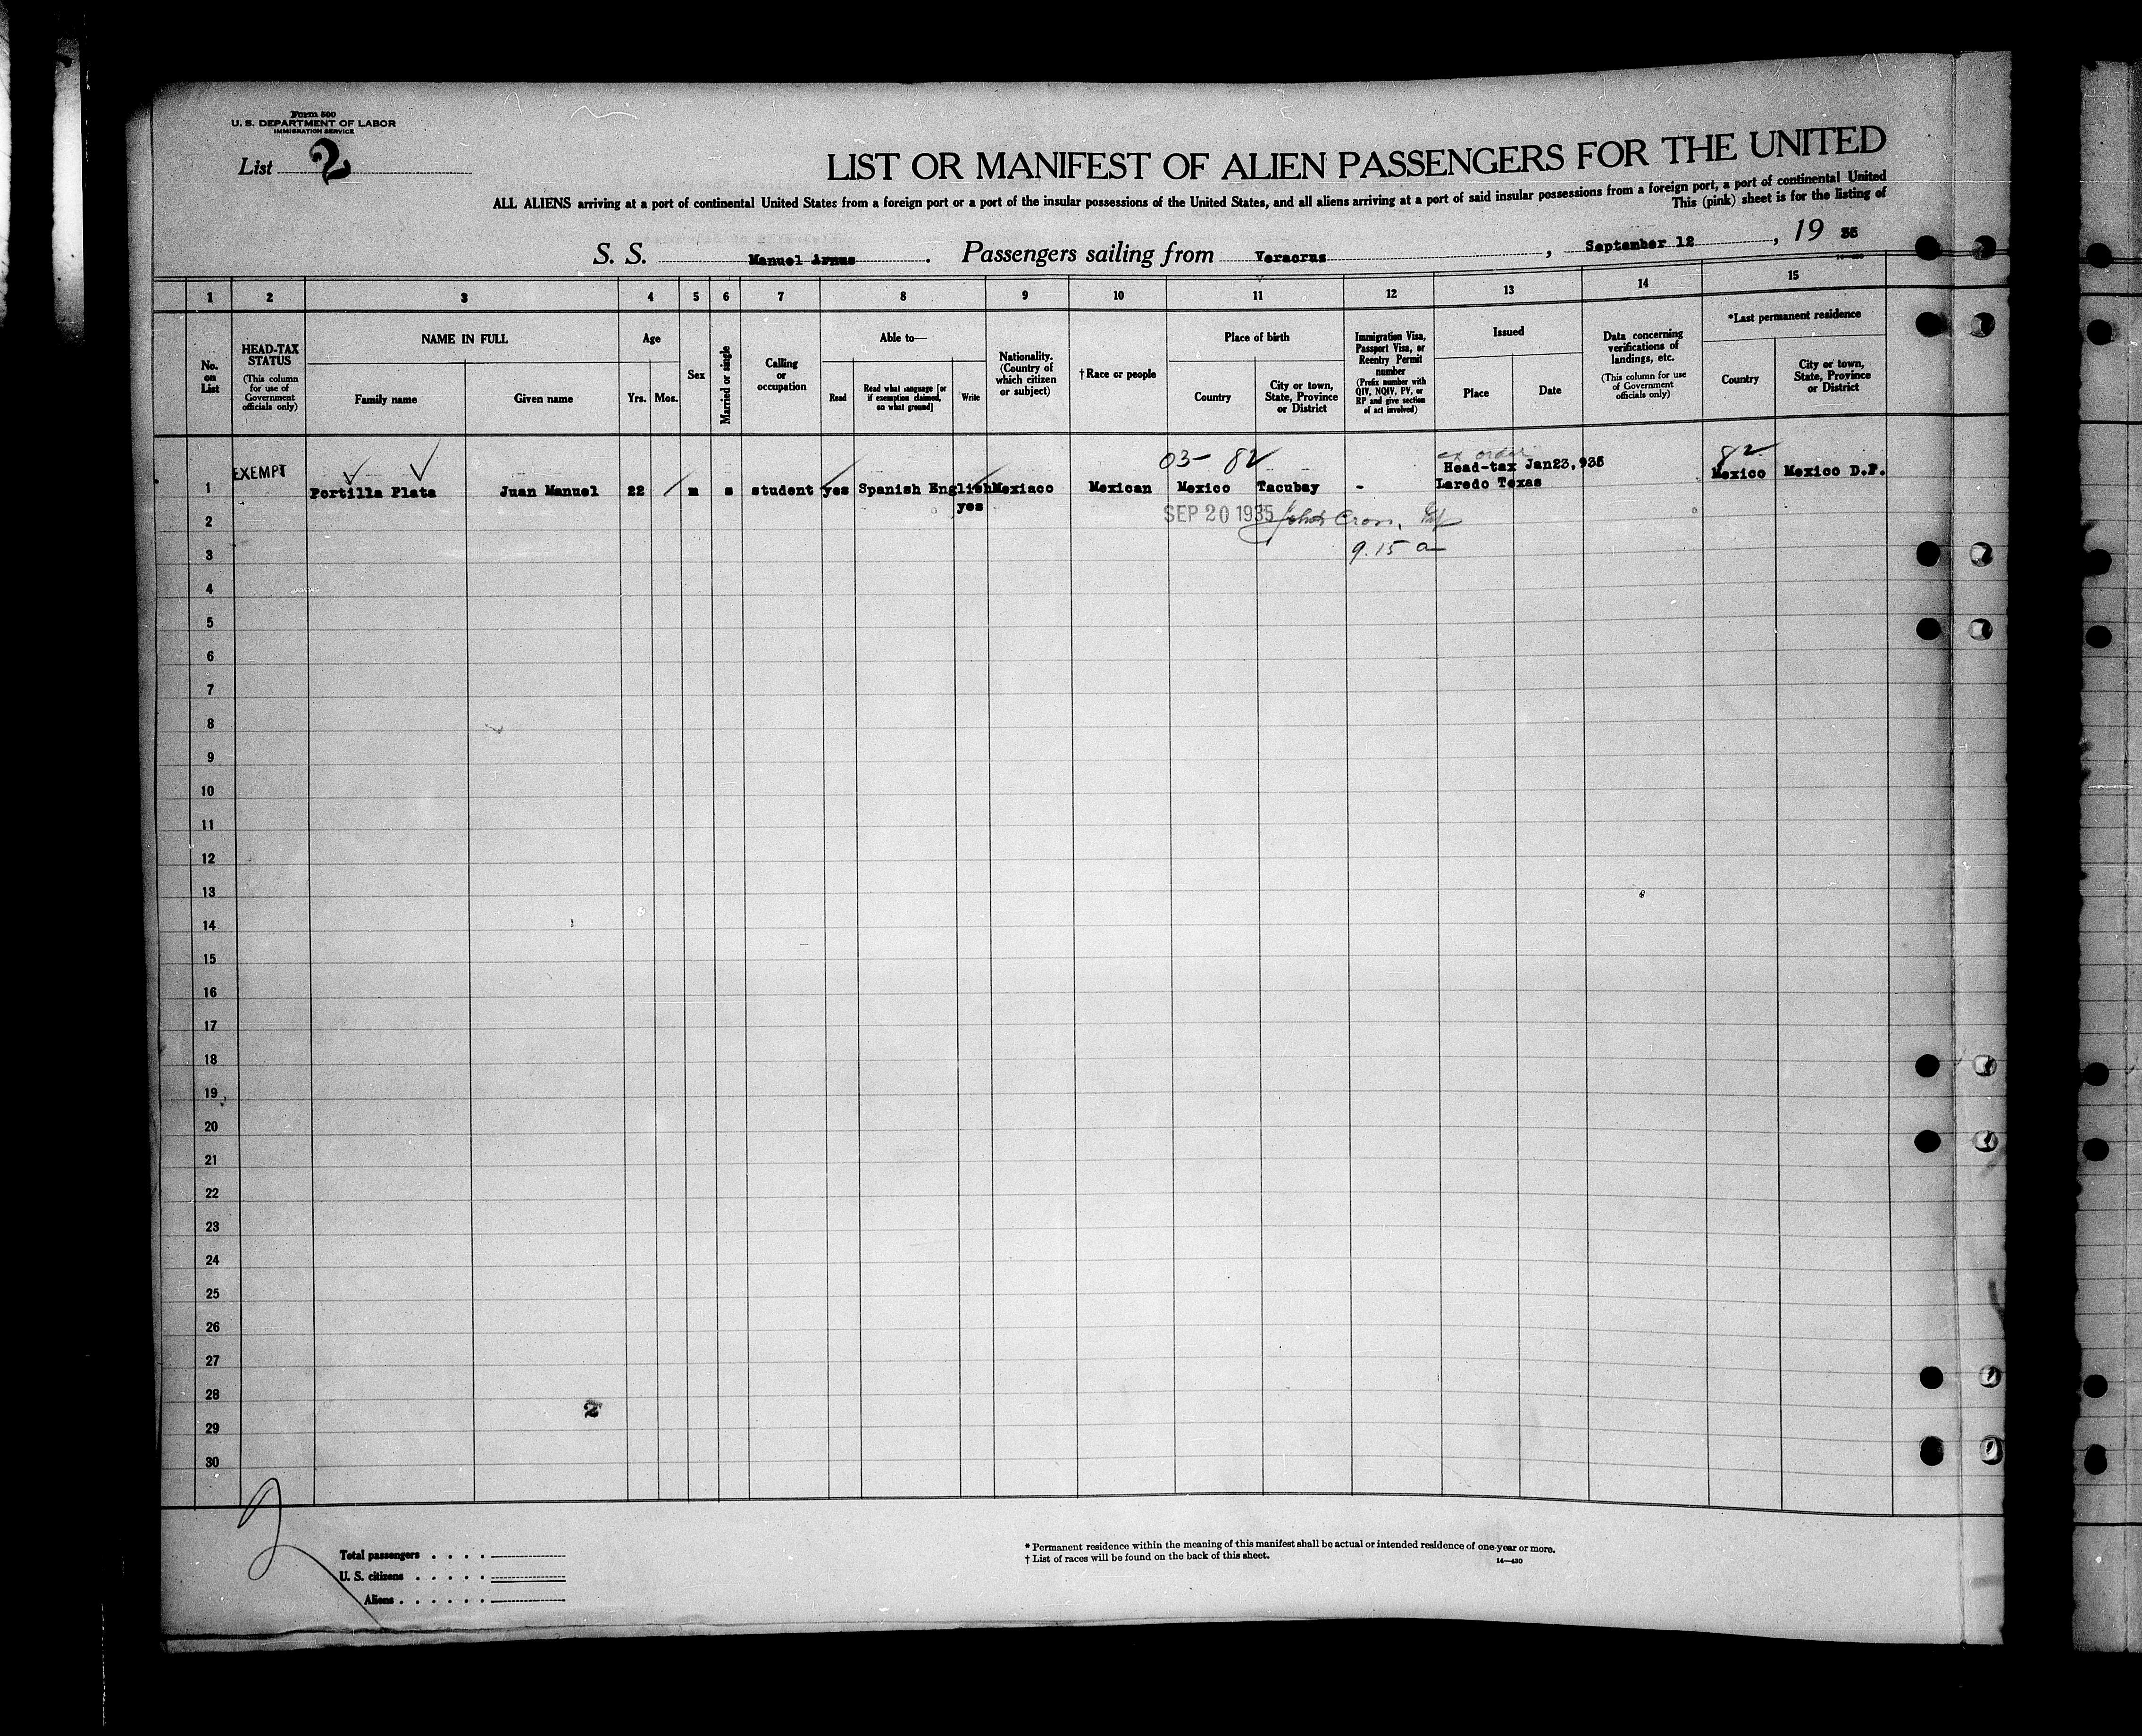 Form 500
U. S. DEPARTMENT OF LABOR
IMMIGRATION SERVICE
List 2
LIST OR MANIFEST OF ALIEN PASSENGERS FOR THE UNITED
ALL ALIENS arriving at a port of continental United States from a foreign port or a port of the insular possessions of the United States, and all aliens arriving at a port of said insular possessions from a foreign port, a port of continental United
This (pink) sheet is for the listing of
S. S. Manuel Arnus . Passengers sailing from Veracruz , September 12 , 19 35
1 2 3 4 5 6 7 8 9 10 11 12 13 14 15
No. on List
HEAD-TAX STATUS
(This column for use of Government officials only)
NAME IN FULL
Family name
Given name
Age
Yrs. Mos.
Sex
Married or single
Calling or occupation
Able to—
Read
Read what language [or if exemption claimed, on what ground]
Write
Nationality. (Country of which citizen or subject)
†Race or people
Place of birth
Country
City or town, State, Province or District
Immigration Visa, Passport Visa, or Reentry Permit number
(Prefix number with QIV, NQIV, PV, or RP and give section of act involved)
Issued
Place
Date
Data concerning verifications of landings, etc.
(This column for use of Government officials only)
*Last permanent residence
Country
City or town, State, Province or District
03- 82
ex order
82
EXEMPT
Head-tax Jan23,935
1 Portilla Plata Juan Manuel 22 m s student yes Spanish English Mexiaco Mexican Mexico Tacubay - Laredo Texas Mexico Mexico D.F.
yes
2 SEP 20 1935
3 9.15 a
4
5
6
7
8
9
10
11
12
13
14
15
16
17
18
19
20
21
22
23
24
25
26
27
28
2
29
30
2
Total passengers
U. S. citizens
Aliens
* Permanent residence within the meaning of this manifest shall be actual or intended residence of one year or more.
† List of races will be found on the back of this sheet.
14—430